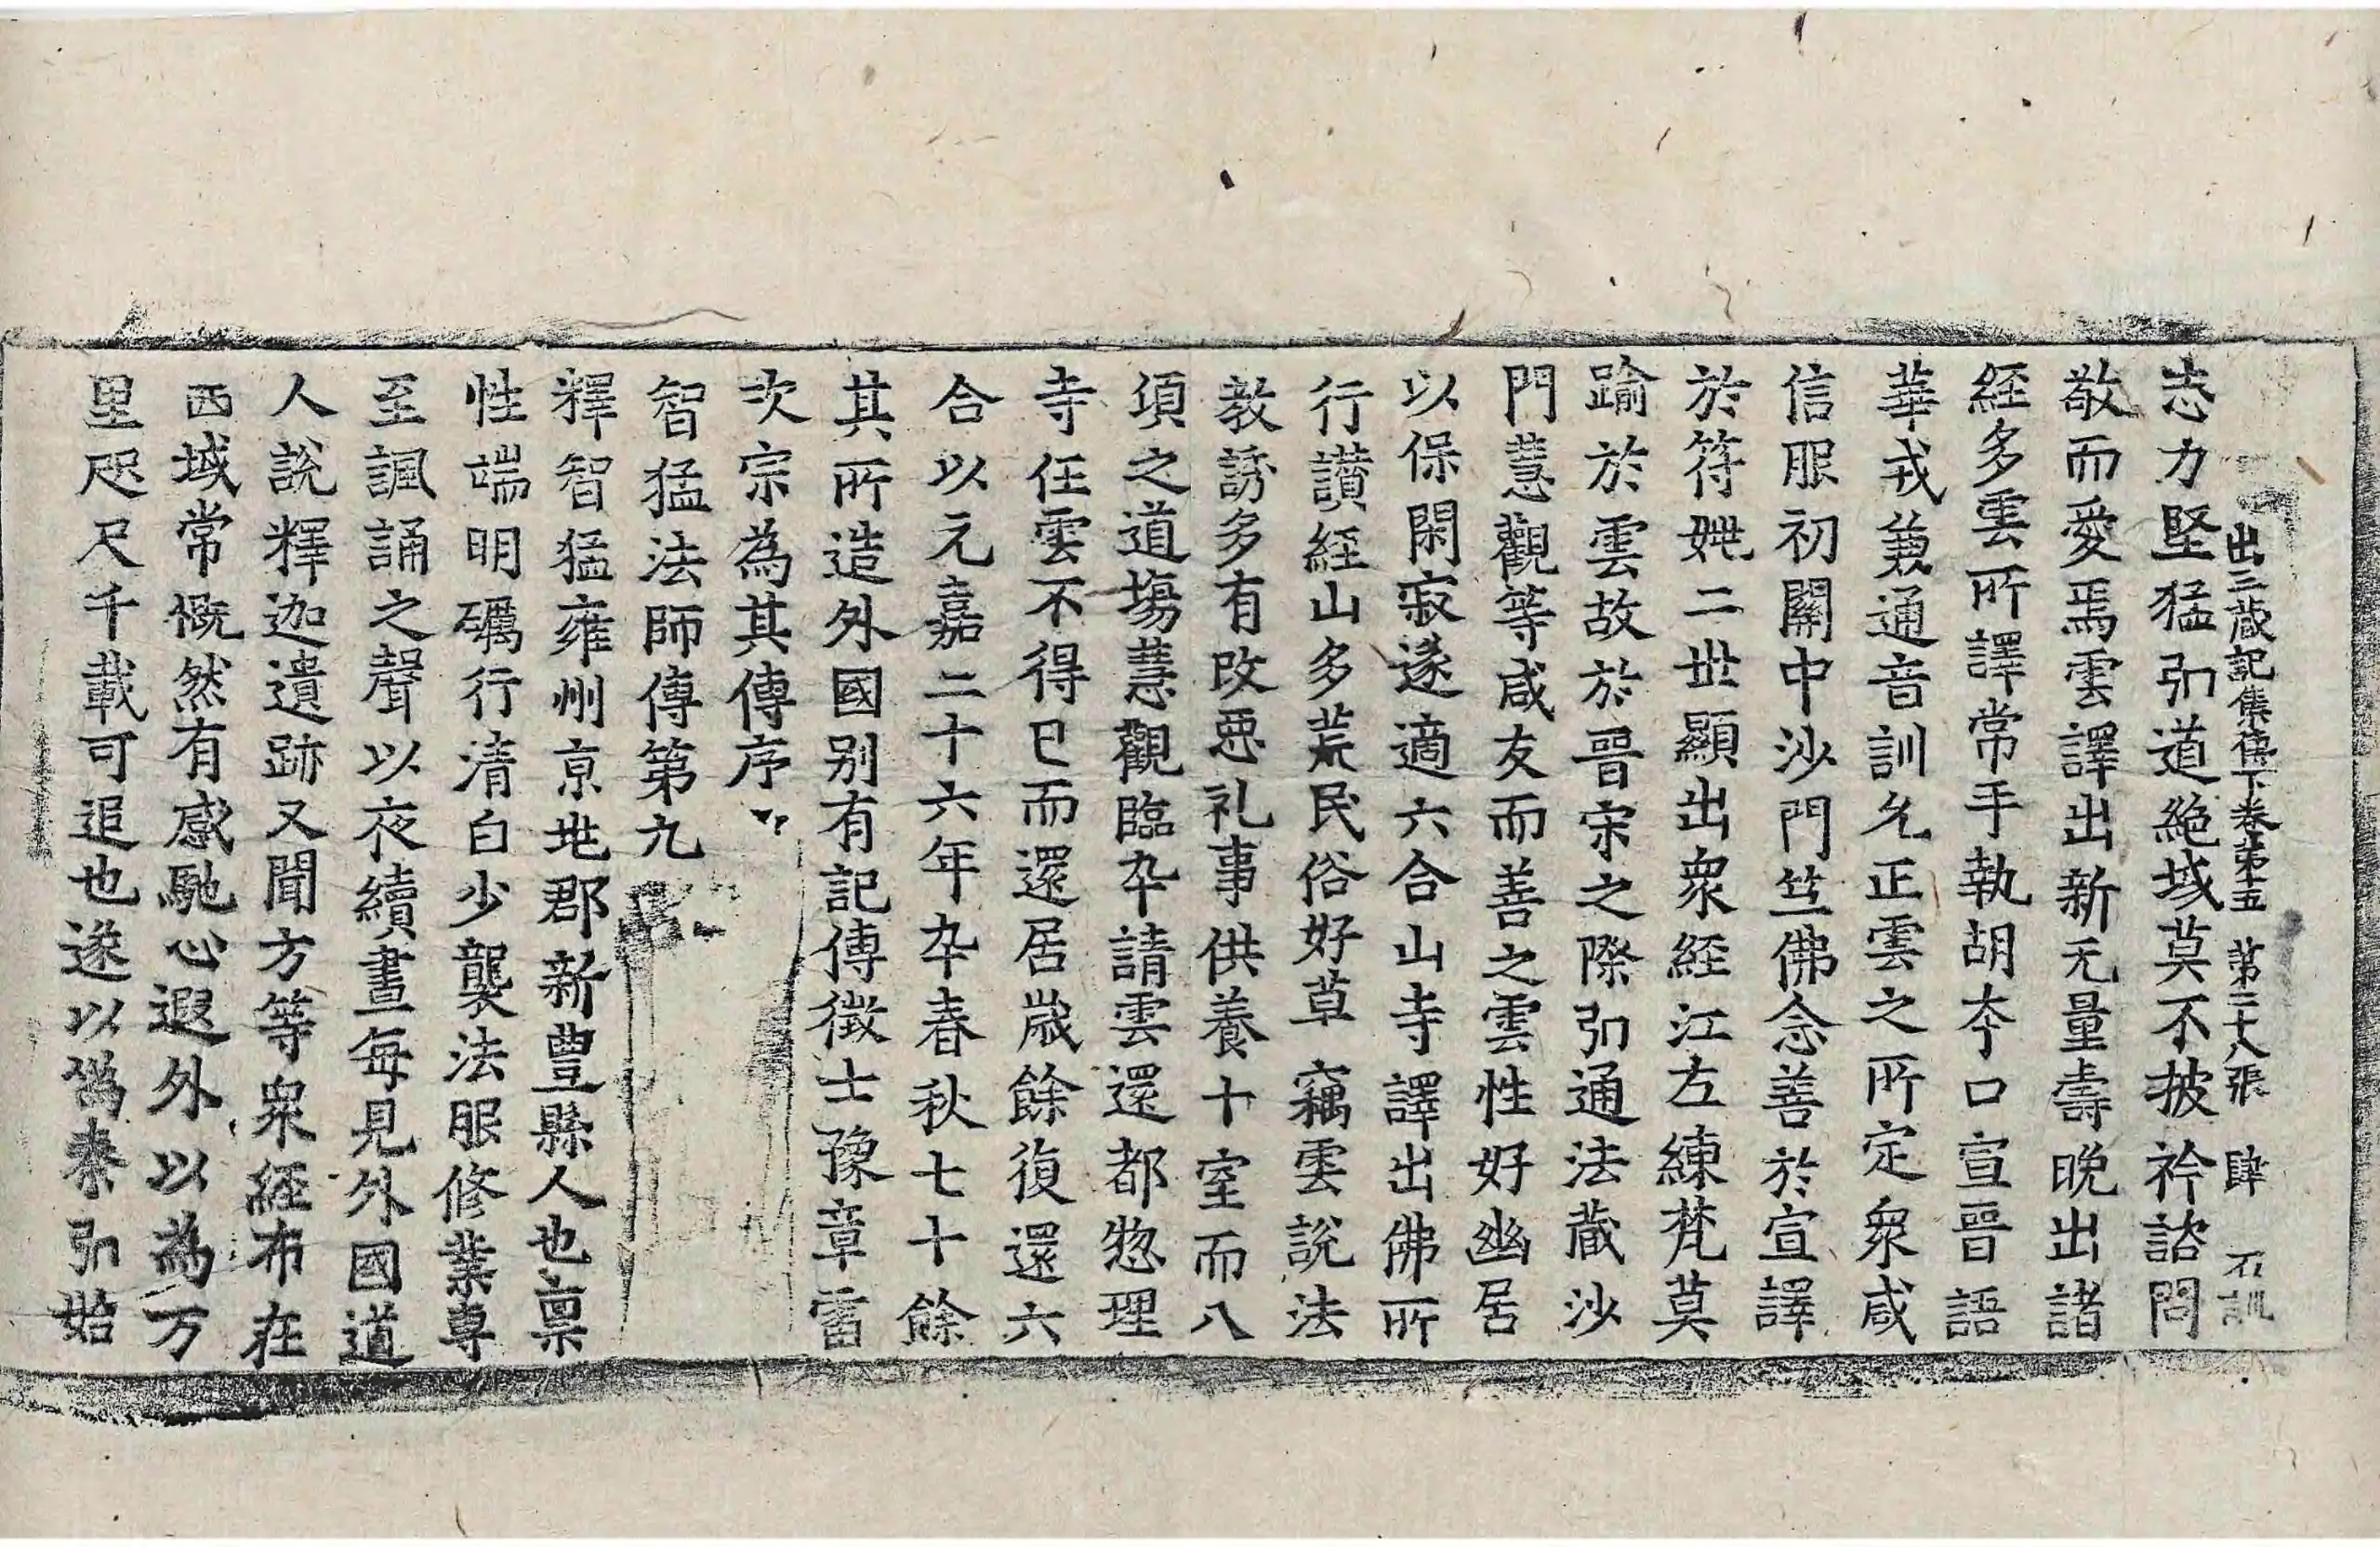 出三藏記集傳下卷第五　第二十八張　肆　石訓
志力堅猛弘道絶域莫不披衿諮問
敬而愛焉雲譯出新无量壽晚出諸
経多雲所譯常手執胡夲口宣晉語
華戎兼通音訓允正雲之所定衆咸
信服初關中沙門竺佛念善於宣譯
於符姚二世顯出衆経江左練梵莫
踰於雲故於晉宋之際弘通法藏沙
門慧觀等咸友而善之雲性好幽居
以保閑寂遂適六合山寺譯出佛所
行讃経山多荒民俗好草竊雲說法
教誘多有改惡礼事供養十室而八
頃之道場慧觀臨卒請雲還都惣理
寺任雲不得已而還居歲餘復還六
合以元嘉二十六年卒春秋七十餘
其所造外國別有記傳徵士豫章雷
次宗為其傳序
智猛法師傳第九
釋智猛雍州京地郡新豐縣人也稟
性端明礪行清白少襲法服修業專
至諷誦之聲以夜續晝每見外國道
人說釋迦遺跡又聞方等衆経布在
西域常慨然有感馳心遐外以為万
里咫尺千載可追也遂以僞秦弘始